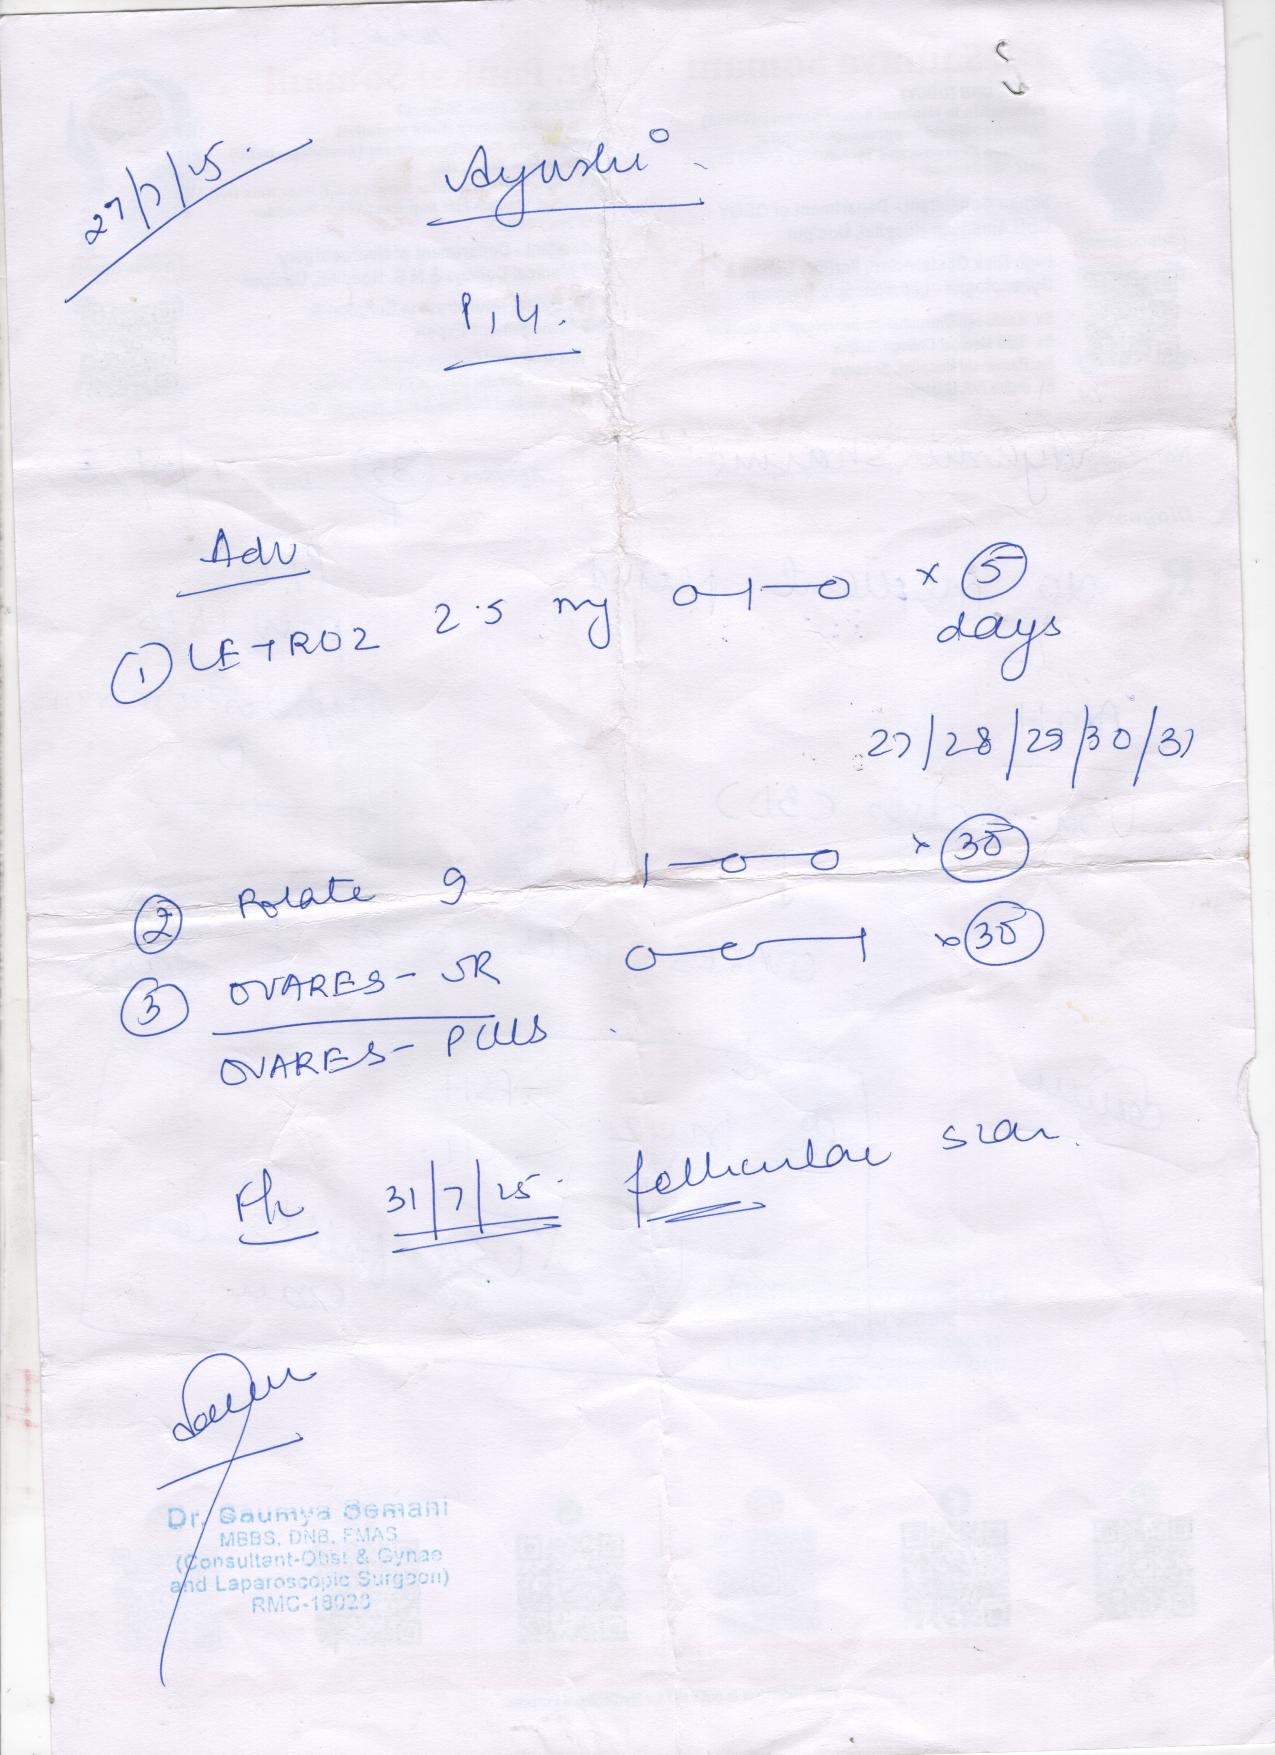 27/7/25.
Ayushi
P1L1.
Adv
① LETROZ 2.5 mg 0-1-0 x 5
days
27/28/29/30/31
② Folate 9 1-0-0 x 30
③ OVARES-SR 0-0-1 x 30
OVARES-PLUS
F/u 31/7/25. follicular scan.
Dr. Saumya Somani
MBBS, DNB, FMAS
(Consultant-Obst & Gynae
and Laparoscopic Surgeon)